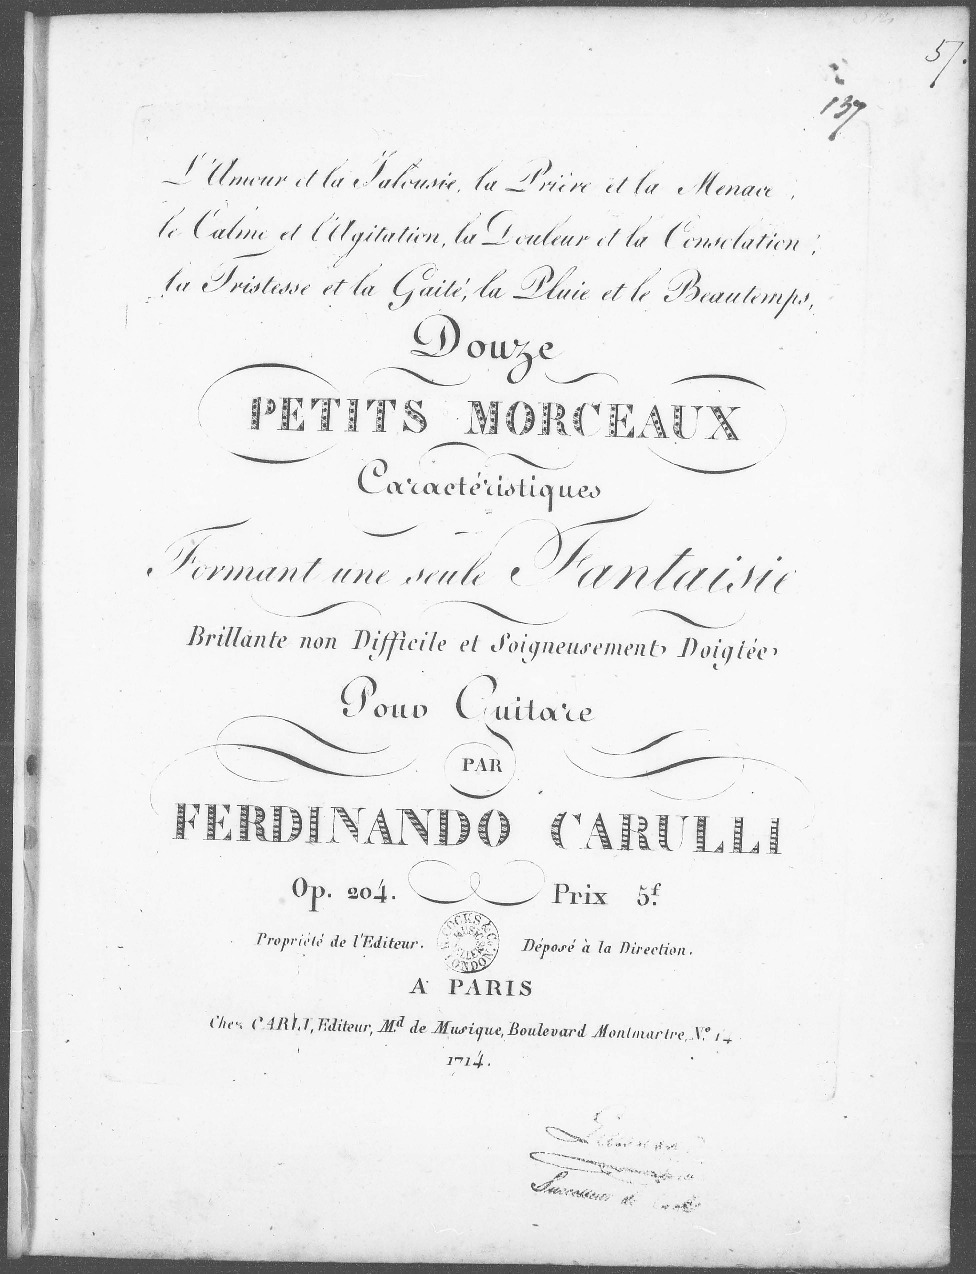 57.
137
L'Amour et la Jalousie, la Prière et la Menace,
le Calme et l'Agitation, la Douleur et la Consolation,
la Tristesse et la Gaité, la Pluie et le Beautemps,
Douze
PETITS MORCEAUX
Caractéristiques
Formant une seule Fantaisie
Brillante non Difficile et Soigneusement Doigtée
Pour Guitare
PAR
FERDINANDO CARULLI
Op. 204. Prix 5f.
Propriété de l'Editeur. Déposé à la Direction.
R. COCKS & Co. LONDON.
A PARIS
Chez CARLI, Editeur, Md. de Musique, Boulevard Montmartre, No. 14
1714.
Successeur de